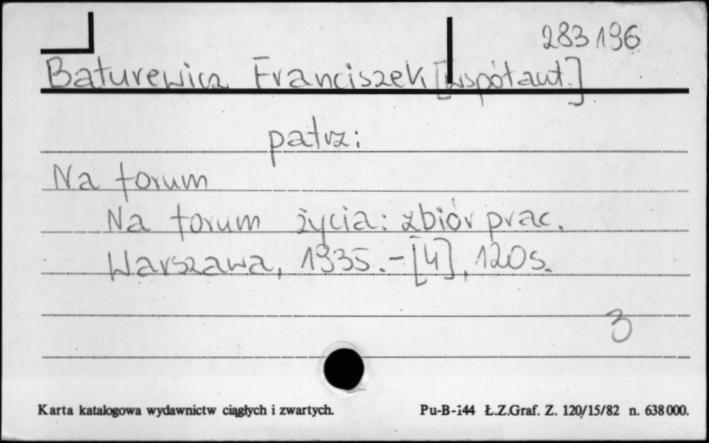 283136
Baturewicz Franciszek [współaut.]
patrz:
Na forum
Na forum życia: zbiór prac.
Warszawa, 1935. - [4], 120 s.
3
Karta katalogowa wydawnictw ciągłych i zwartych.
Pu-B-144 Ł.Z.Graf. Z. 120/15/82 n. 638000.